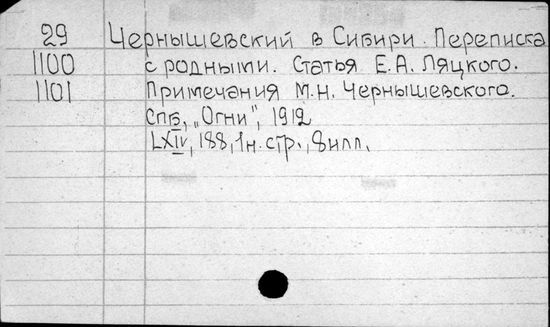 29 Чернышевский в Сибири. Переписка
1100 с родными. Статья Е.А. Ляцкого.
1101 Примечания М.Н. Чернышевского.
Спб, „Огни", 1912
LXIV, 188, 1н. стр., 8 илл.